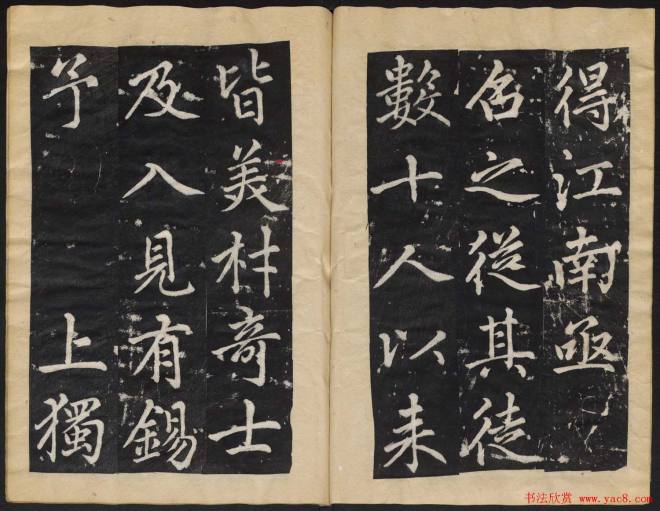 得江南亟
名之從其徒
數十人以来
皆美材奇士
及入見有錫
予 上獨
书法欣赏 www.yac8.com